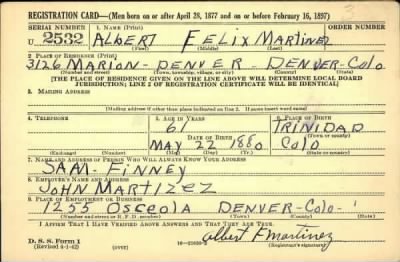 REGISTRATION CARD—(Men born on or after April 28, 1877 and on or before February 16, 1897)
SERIAL NUMBER 1. NAME (Print) ORDER NUMBER
U 2532 ALBERT FELIX MARTINEZ
(First) (Middle) (Last)
2. PLACE OF RESIDENCE (Print)
3126 MARION- DENVER- DENVER- COLO
(Number and street) (Town, township, village, or city) (County) (State)
[THE PLACE OF RESIDENCE GIVEN ON THE LINE ABOVE WILL DETERMINE LOCAL BOARD
JURISDICTION; LINE 2 OF REGISTRATION CERTIFICATE WILL BE IDENTICAL]
3. MAILING ADDRESS
[Mailing address if other than place indicated on line 2. If same insert word same]
4. TELEPHONE 5. AGE IN YEARS 6. PLACE OF BIRTH
61 TRINIDAD
DATE OF BIRTH (Town or county)
MAY 22 1880 COLO
(Exchange) (Number) (Mo.) (Day) (Yr.) (State or country)
7. NAME AND ADDRESS OF PERSON WHO WILL ALWAYS KNOW YOUR ADDRESS
SAM- FINNEY
8. EMPLOYER'S NAME AND ADDRESS
JOHN MARTIZEZ
9. PLACE OF EMPLOYMENT OR BUSINESS
1255 OSCEOLA DENVER- COLO-
(Number and street or R. F. D. number) (Town) (County) (State)
I AFFIRM THAT I HAVE VERIFIED ABOVE ANSWERS AND THAT THEY ARE TRUE.
D. S. S. Form 1 Albert F Martinez
(Revised 4-1-42) (over) (Registrant's signature)